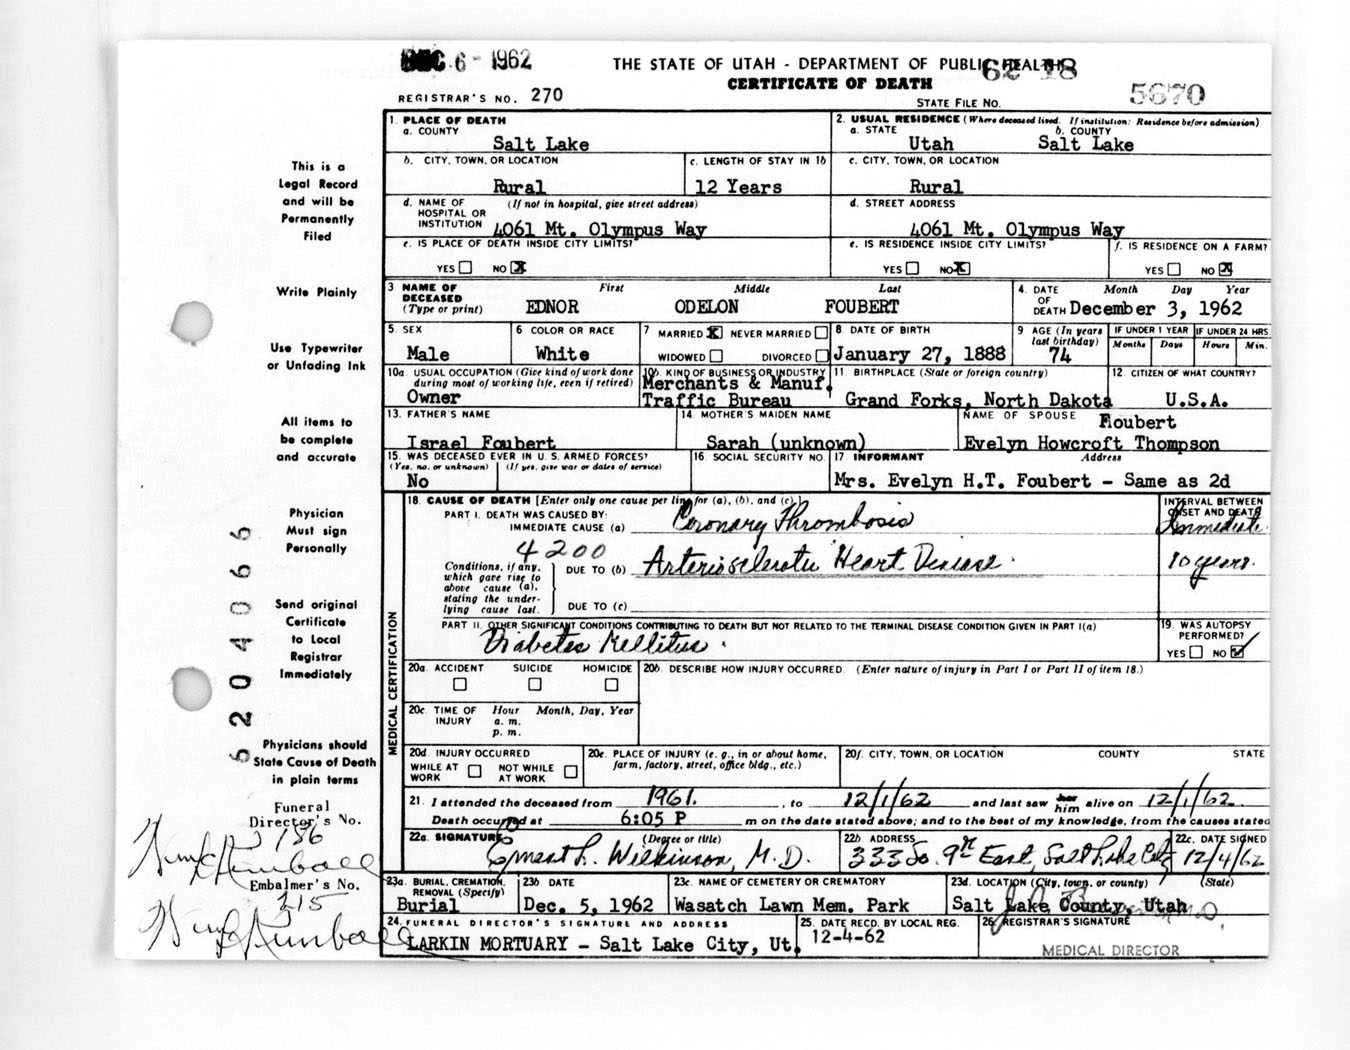 DEC 6 - 1962
THE STATE OF UTAH - DEPARTMENT OF PUBLIC HEALTH
62 18
CERTIFICATE OF DEATH
REGISTRAR'S NO. 270
STATE FILE NO. 5670
This is a
Legal Record
and will be
Permanently
Filed
Write Plainly
Use Typewriter
or Unfading Ink
All items to
be complete
and accurate
Physician
Must sign
Personally
Send original
Certificate
to Local
Registrar
Immediately
Physicians should
State Cause of Death
in plain terms
Funeral
Director's No.
Embalmer's No.
215
6204066
1. PLACE OF DEATH
a. COUNTY
Salt Lake
2. USUAL RESIDENCE (Where deceased lived. If institution: Residence before admission)
a. STATE b. COUNTY
Utah Salt Lake
b. CITY, TOWN, OR LOCATION
Rural
c. LENGTH OF STAY IN 1b
12 Years
c. CITY, TOWN, OR LOCATION
Rural
d. NAME OF (If not in hospital, give street address)
HOSPITAL OR
INSTITUTION 4061 Mt. Olympus Way
d. STREET ADDRESS
4061 Mt. Olympus Way
e. IS PLACE OF DEATH INSIDE CITY LIMITS?
YES NO X
e. IS RESIDENCE INSIDE CITY LIMITS?
YES NO X
f. IS RESIDENCE ON A FARM?
YES NO X
3 NAME OF First Middle Last
DECEASED
(Type or print) EDNOR ODELON FOUBERT
4. DATE Month Day Year
OF
DEATH December 3, 1962
5. SEX
Male
6 COLOR OR RACE
White
7 MARRIED X NEVER MARRIED
WIDOWED DIVORCED
8 DATE OF BIRTH
January 27, 1888
9 AGE (In years
last birthday)
74
IF UNDER 1 YEAR IF UNDER 24 HRS.
Months Days Hours Min.
10a. USUAL OCCUPATION (Give kind of work done
during most of working life, even if retired)
Owner
10b. KIND OF BUSINESS OR INDUSTRY
Merchants & Manuf.
Traffic Bureau
11 BIRTHPLACE (State or foreign country)
Grand Forks, North Dakota
12 CITIZEN OF WHAT COUNTRY?
U.S.A.
13. FATHER'S NAME
Israel Foubert
14 MOTHER'S MAIDEN NAME
Sarah (unknown)
NAME OF SPOUSE Foubert
Evelyn Howcroft Thompson
15. WAS DECEASED EVER IN U.S. ARMED FORCES?
(Yes, no, or unknown) (If yes, give war or dates of service)
No
16 SOCIAL SECURITY NO.
17 INFORMANT Address
Mrs. Evelyn H.T. Foubert - Same as 2d
MEDICAL CERTIFICATION
18. CAUSE OF DEATH [Enter only one cause per line for (a), (b), and (c).]
PART I. DEATH WAS CAUSED BY:
IMMEDIATE CAUSE (a) Coronary Thrombosis
INTERVAL BETWEEN
ONSET AND DEATH
Immediate.
4200
Conditions, if any,
which gave rise to
above cause (a),
stating the under-
lying cause last.
DUE TO (b) Arteriosclerotic Heart Disease.
10 years.
DUE TO (c)
PART II. OTHER SIGNIFICANT CONDITIONS CONTRIBUTING TO DEATH BUT NOT RELATED TO THE TERMINAL DISEASE CONDITION GIVEN IN PART I(a)
Diabetes Mellitus.
19. WAS AUTOPSY
PERFORMED?
YES NO ✓
20a. ACCIDENT SUICIDE HOMICIDE
20b. DESCRIBE HOW INJURY OCCURRED. (Enter nature of injury in Part I or Part II of item 18.)
20c. TIME OF Hour Month, Day, Year
INJURY a. m.
p. m.
20d. INJURY OCCURRED
WHILE AT NOT WHILE
WORK AT WORK
20e. PLACE OF INJURY (e. g., in or about home,
farm, factory, street, office bldg., etc.)
20f. CITY, TOWN, OR LOCATION COUNTY STATE
21. I attended the deceased from 1961. , to 12/1/62 and last saw her him alive on 12/1/62
Death occurred at 6:05 P m on the date stated above; and to the best of my knowledge, from the causes stated
22a. SIGNATURE (Degree or title)
Ernest L. Wilkinson, M.D.
22b ADDRESS
333 So. 9th East, Salt Lake City
22c. DATE SIGNED
12/4/62
23a. BURIAL, CREMATION,
REMOVAL (Specify)
Burial
23b. DATE
Dec. 5, 1962
23c. NAME OF CEMETERY OR CREMATORY
Wasatch Lawn Mem. Park
23d. LOCATION (City, town, or county) (State)
Salt Lake County, Utah
24. FUNERAL DIRECTOR'S SIGNATURE AND ADDRESS
LARKIN MORTUARY - Salt Lake City, Ut.
25. DATE RECD. BY LOCAL REG.
12-4-62
26. REGISTRAR'S SIGNATURE
MEDICAL DIRECTOR